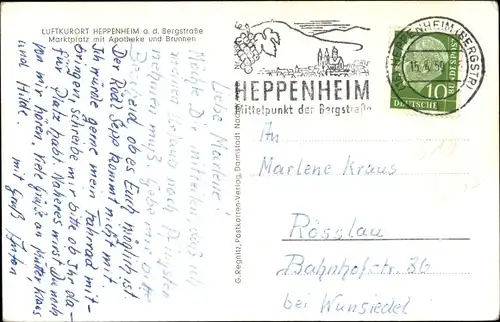 LUFTKURORT HEPPENHEIM a. d. Bergstraße
Marktplatz mit Apotheke und Brunnen
Liebe Marlene!
Möchte Dir mitteilen, daß ich
meinen Urlaub nach Pfingsten
nehmen muß. Gebe mir bitte
Bescheid, ob es Euch möglich ist.
Der Rödl Sepp kommt nicht mit.
Ich würde gerne mein Fahrrad mit-
bringen, schreibe mir bitte ob Ihr da-
für Platz habt. Näheres wirst Du noch
von mir hören. Viele Grüße an Mutter Kraus
und Hilde.
mit Gruß
G. Regnitz, Postkarten-Verlag, Darmstadt
HEPPENHEIM
Mittelpunkt der Bergstraße
HEPPENHEIM (BERGSTR)
DEUTSCHE BUNDESPOST
10
An
Marlene Kraus
Rösslau
Bahnhofstr. 86
bei Wunsiedel